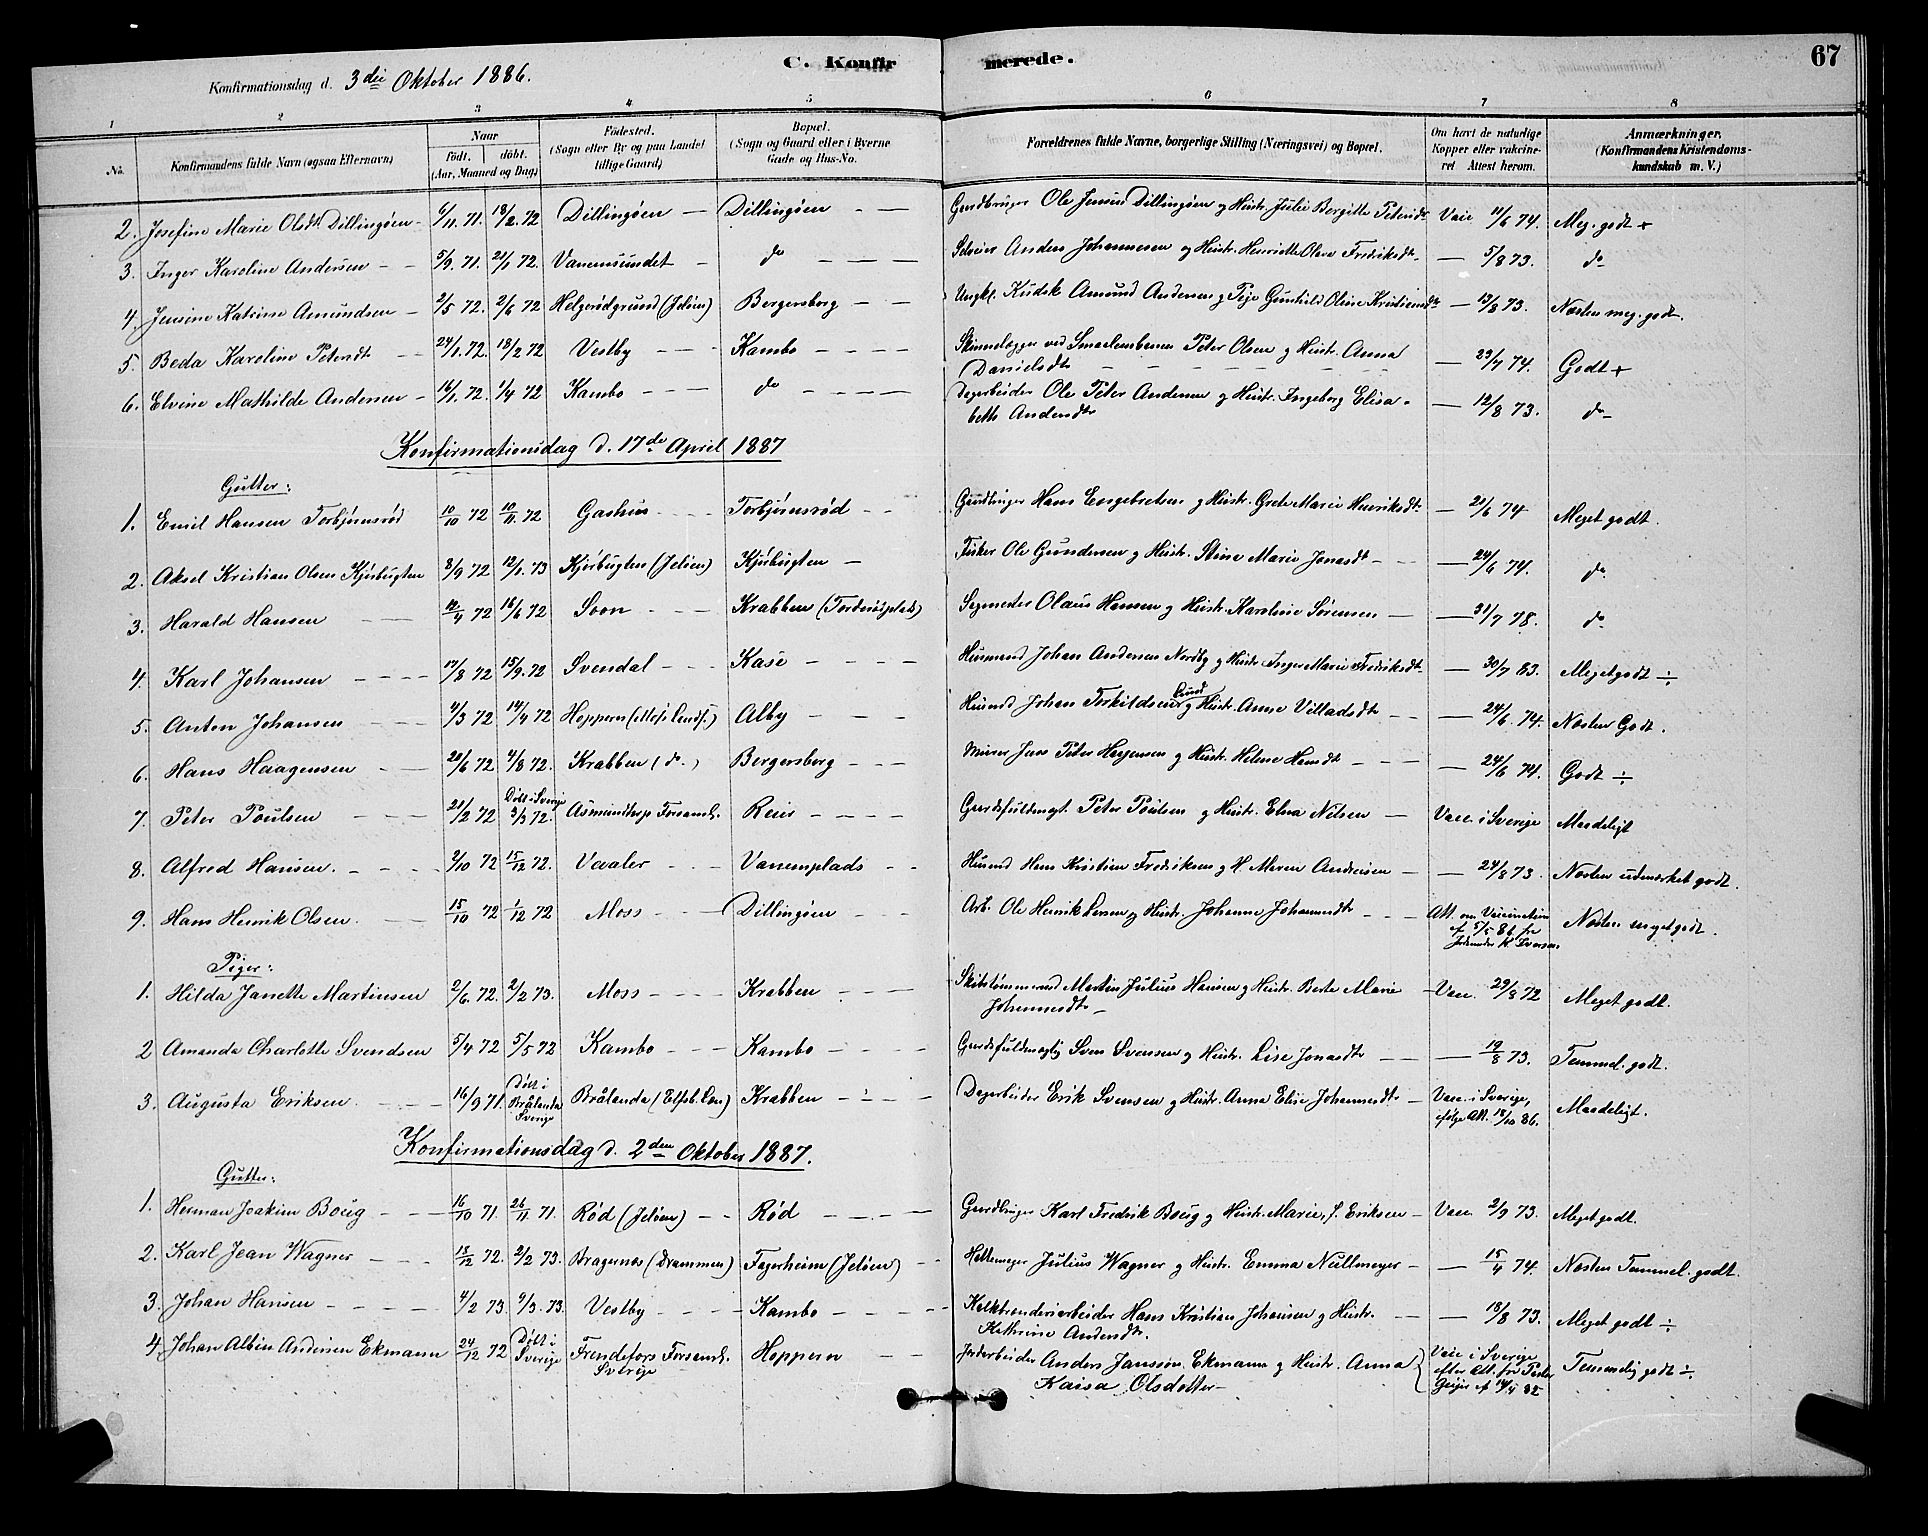 C. Konfirmerede. 67
Konfirmationsdag d. 3die Oktober 1886.
1 2 3 4 5 6 7 8
No. Konfirmandens fulde Navn (ogsaa Efternavn) Naar født, døbt. (Aar, Maaned og Dag) Fødested. (Sogn eller By og paa Landet tillige Gaard) Bopæl. (Sogn og Gaard eller i Byerne Gade og Hus-No. Forældrenes fulde Navne, borgerlige Stilling (Næringsvei) og Bopæl. Om havt de naturlige Kopper eller vakcineret Attest herom. Anmærkninger. (Konfirmandens Kristendomskundskab m. V.)
2. Josefine Marie Olsdtr Dillingøen 6/11. 71. 18/2. 72 Dillingøen Dillingøen Gardbruger Ole Jensen Dillingøen og Hustr. Julie Bergitte Petersdtr Vacc 11/6 74. Meg. godt +
3. Inger Karoline Andersen 5/9. 71. 21/1 72. Vanemsundet do Anders Johannesen og Hustr. Henriette Olava Fredriksdtr 5/8 73. do
4. Jensine Katrine Amundsen 2/5 72. 2/6 72 Helgerødgrund (Jeløen) Bergersborg Ungkl. Kudsk Amund Andersen og Pige Gunhild Oline Kristiansdtr 13/8 73. Næsten meg. godt.
5. Beda Karoline Petersdtr 24/1. 72. 18/2 72 Vestby Kambo Skinnelægger ved Smaalensbanen Peter Olsen og Hustr. Anna
Danielsdtr 23/7 74. Godt +
6. Elvine Mathilde Andersen 16/1. 72. 1/4 72 Kambo do Dagarbeider Ole Peter Andersen og Hustr. Ingeborg Elisa-
beth Andersdtr 12/8 73. do
Konfirmationsdag d. 17de April 1887
Gutter:
1. Emil Hansen Torbjørnsrød 10/10 72 10/11. 72 Gashus Torbjørnsrød Gardbruger Hans Engebretsen og Hustr. Grete Marie Henriksdtr 21/6 74 Meget godt.
2. Aksel Kristian Olsen Kjørbugten 8/9 72 12/1. 73 Kjørbugten (Jeløen) Kjørbugten Fisker Ole Gundersen og Hustr. Stine Marie Jonasdtr 24/6 74. do
3. Harald Hansen 12/4 72 16/6 72 Soon Krabben (Torderødplads) Sagmester Olaus Hansen og Hustr. Karoline Sørensen 31/7 78. do
4. Karl Johansen 17/8 72 15/9. 72 Svendal Kase Husmand Johan Andersen Nordby og Hustr. Inger Marie Fredriksdtr 30/7 83. Meget godt ÷
5. Anton Johansen 4/3 72 14/4 72 Hoppern (Moss Lands.) Alby Husmd Johan Torkildsen Lund og Hustr. Anne Villadsdtr 24/6. 74. Næsten Godt.
6. Hans Haagensen 20/6 72 4/8 72. Krabben (do.) Bergersborg Murer Jens Peter Haagensen og Hustr. Helene Hansdtr 24/6 74. Godt ÷
7. Peter Poulsen 21/2 72 Døbt i Sverige 3/3 72. Asmundtorps Forsaml. Reier Gaardsfuldmægt. Peter Poulsen og Hustr. Elna Nelsen Vacc. i Sverige Maadeligt
8. Alfred Hansen. 2/10 72 15/12 72. Vaaler Vanemplads Husmd Hans Kristian Fredriksen og H. Maren Andersen 24/8 73. Næsten udmærket godt.
9. Hans Henrik Olsen. 15/10 72 1/12 72 Moss Dillingøen Arb. Ole Henrik Larsen og Hustr. Johanne Johannesdtr Att. om Vaccination
af 5/5 86 fra
Jordmoder K Iversen Næsten meget godt.
Piger:
1. Hilda Janette Martinsen 2/6. 72. 2/2 73. Moss Krabben Skibstømmermd Martin Julius Hansen og Hustr. Berte Marie
Johannesdtr Vacc. 29/8 72 Meget godt.
2 Amanda Charlotte Svendsen 5/4 72 5/5 72 Kambo Kambo Gardsfuldmægtig Sven Svensen og Hustr. Lise Jonasdtr 19/8 73. Temmel. godt.
3. Augusta Eriksen. 16/9 71. Døbt i Brålanda Sverige Brålanda (Elfsb. Län) Krabben Dagarbeider Erik Svensen og Hustr. Anna Elise Johannesdtr Vacc. i Sverige,
ifølge Att. 18/10 86. Maadeligt.
Konfirmationsdag d. 2den Oktober 1887.
Gutter:
1. Herman Joakim Boug 16/10 71. 26/11 71. Rød (Jeløen) Rød Gardbruger Karl Fredrik Boug og Hustr. Marie, f. Eriksen Vacc. 2/9 73. Meget godt.
2. Karl Jean Wagner 13/12 72. 2/2 73. Bragernæs (Drammen) Fagerheim (Jeløen) Hattemager Julius Wagner og Hustr. Emma Nullmeyer 15/4 74. Næsten Temmel. godt.
3. Johan Hansen 4/2 73. 9/3. 73. Vestby Kambo Kalkbrænderiarbeider Hans Kristian Johansen og Hustr.
Kathrine Andersdtr. 18/8 73. Meget godt ÷
4. Johan Albin Andersen Ekmann 24/12 72 Døbt i Sverige Frendefors Forsaml. Sverige Hoppern Jordarbeider Anders Jansson Ekmann og Hustr. Anna
Kaisa Olsdotter Vacc i Sverige
efter Att. fra Pastor
Geijer af 14/4 82 Temmelig godt ÷